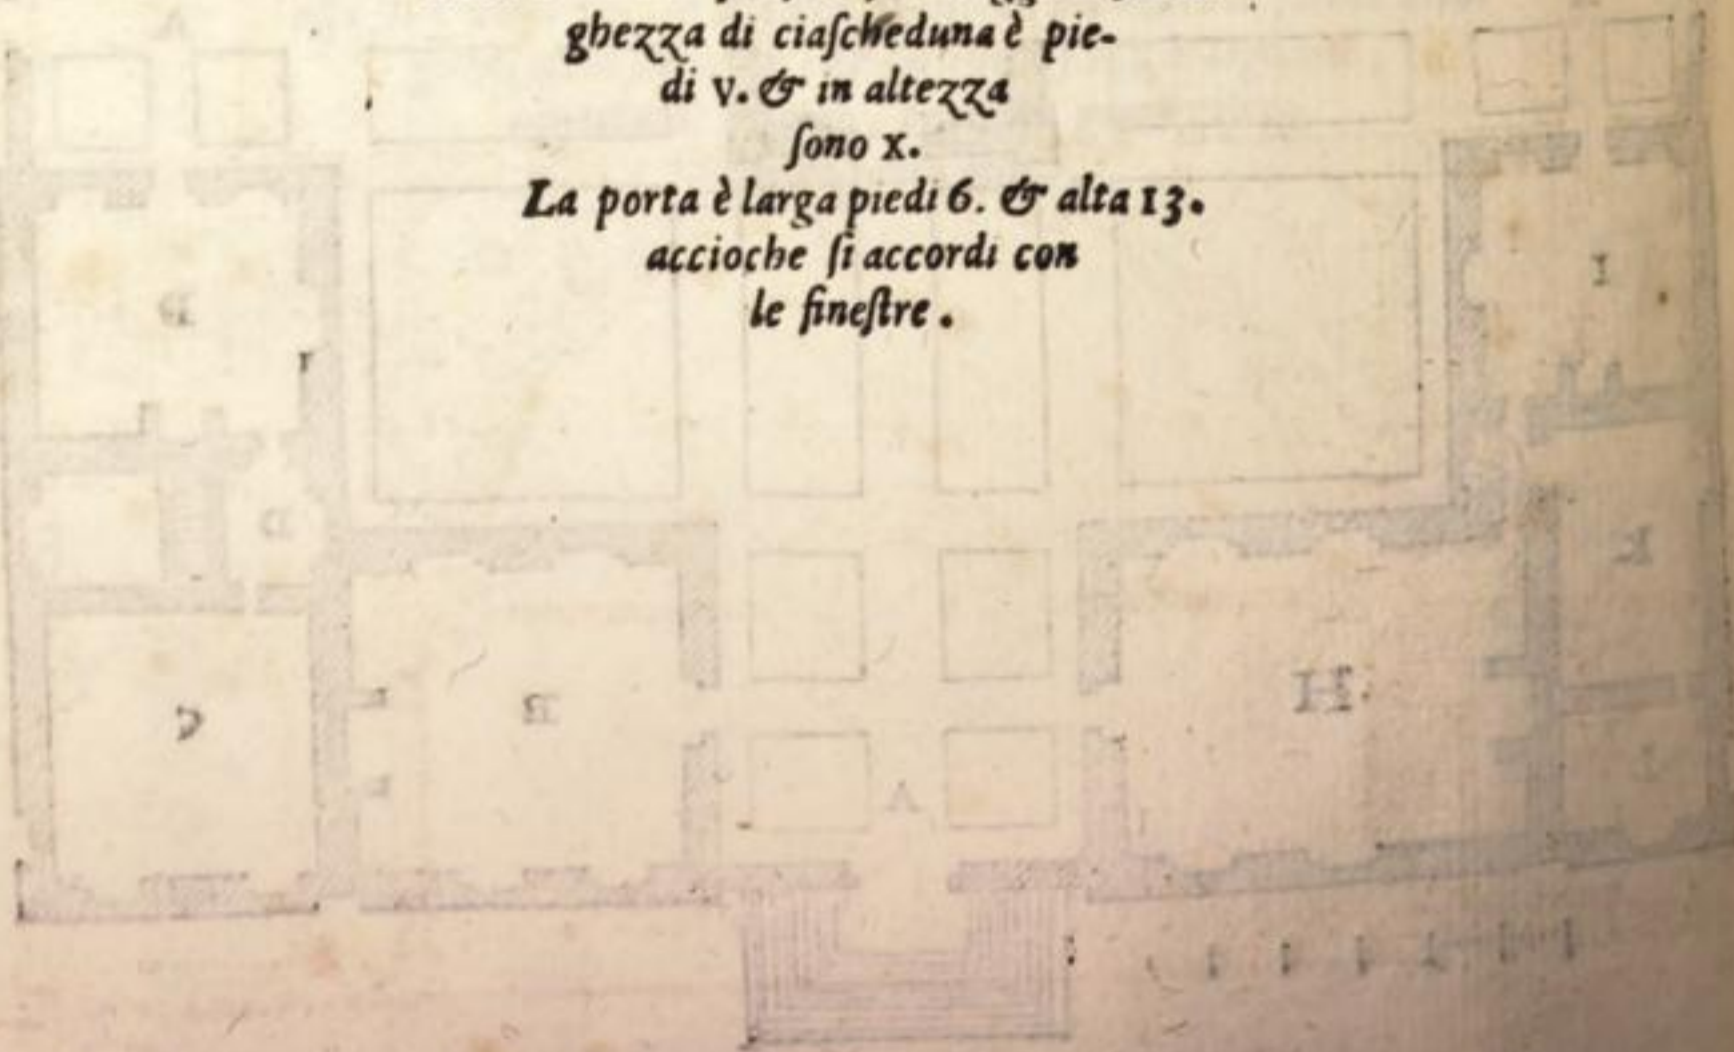 ghezza di ciaſcheduna è pie-
di v. & in altezza
ſono x.
La porta è larga piedi 6. & alta 13.
accioche ſi accordi con
le fineſtre .
I
H